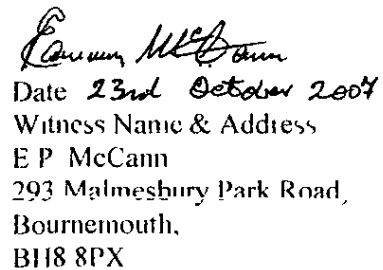 McCann
Date 23rd October 2007
Witness Name & Address
E P McCann
293 Malmesbury Park Road,
Bournemouth,
BH8 8PX